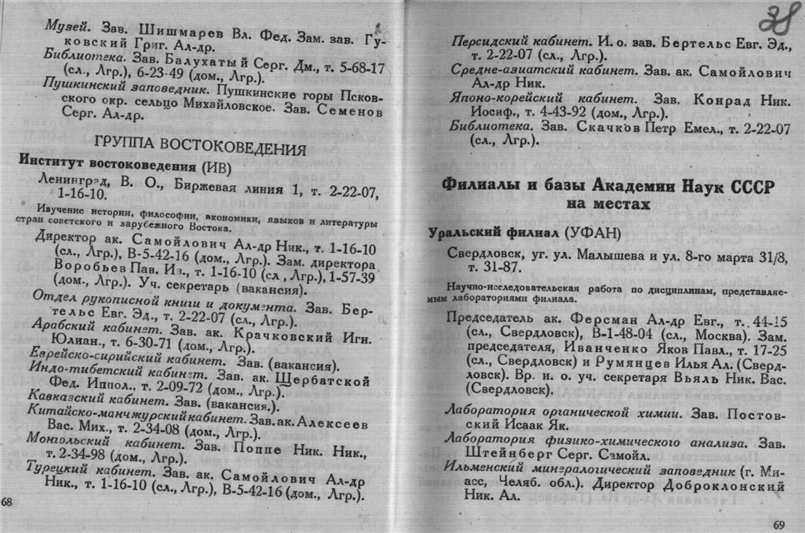 Музей. Зав. Шишмарев Вл. Фед. Зам. зав. Гу-
ковский Григ. Ал-др.
Библиотека. Зав. Балухатый Серг. Дм., т. 5-68-17
(сл., Лгр.), 6-23-49 (дом., Лгр.).
Пушкинский заповедник. Пушкинские горы Псков-
ского окр. сельцо Михайловское. Зав. Семенов
Серг. Ал-др.
ГРУППА ВОСТОКОВЕДЕНИЯ
Институт востоковедения (ИВ)
Ленинград, В. О., Биржевая линия 1, т. 2-22-07,
1-16-10.
Изучение истории, философии, экономики, языков и литературы
стран советского и зарубежного Востока.
Директор ак. Самойлович Ал-др Ник., т. 1-16-10
(сл., Лгр.), В-5-42-16 (дом., Лгр.). Зам. директора
Воробьев Пав. Ив., т. 1-16-10 (сл., Лгр.), 1-57-39
(дом., Лгр.). Уч. секретарь (вакансия).
Отдел рукописной книги и документа. Зав. Бер-
тельс Евг. Эд., т. 2-22-07 (сл., Лгр.).
Арабский кабинет. Зав. ак. Крачковский Игн.
Юлиан., т. 6-30-71 (дом., Лгр.).
Еврейско-сирийский кабинет. Зав. (вакансия).
Индо-тибетский кабинет. Зав. ак. Щербатской
Фед. Иппол., т. 2-09-72 (дом., Лгр.).
Кавказский кабинет. Зав. (вакансия.).
Китайско-манчжурский кабинет. Зав. ак. Алексеев
Вас. Мих., т. 2-34-08 (дом., Лгр.).
Монгольский кабинет. Зав. Поппе Ник. Ник.,
т. 2-34-98 (дом., Лгр.).
Турецкий кабинет. Зав. ак. Самойлович Ал-др
Ник., т. 1-16-10 (сл., Лгр.), В-5-42-16 (дом., Лгр.).
68
38
Персидский кабинет. И. о. зав. Бертельс Евг. Эд.,
т. 2-22-07 (сл., Лгр.).
Средне-азиатский кабинет. Зав. ак. Самойлович
Ал-др Ник.
Японо-корейский кабинет. Зав. Конрад Ник.
Иосиф., т. 4-43-92 (дом., Лгр.).
Библиотека. Зав. Скачков Петр Емел., т. 2-22-07
(сл., Лгр.).
Филиалы и базы Академии Наук СССР
на местах
Уральский филиал (УФАН)
Свердловск, уг. ул. Малышева и ул. 8-го марта 31/8,
т. 31-87.
Научно-исследовательская работа по дисциплинам, представляе-
мым лабораториями филиала.
Председатель ак. Ферсман Ал-др Евг., т. 44-15
(сл., Свердловск), В-1-48-04 (сл., Москва). Зам.
председателя, Иванченко Яков Павл., т. 17-25
(сл., Свердловск) и Румянцев Илья Ал. (Сверд-
ловск). Вр. и. о. уч. секретаря Вьяль Ник. Вас.
(Свердловск).
Лаборатория органической химии. Зав. Постов-
ский Исаак Як.
Лаборатория физико-химического анализа. Зав.
Штейнберг Серг. Самойл.
Ильменский минералогический заповедник (г. Ми-
асс, Челяб. обл.). Директор Доброклонский
Ник. Ал.
69